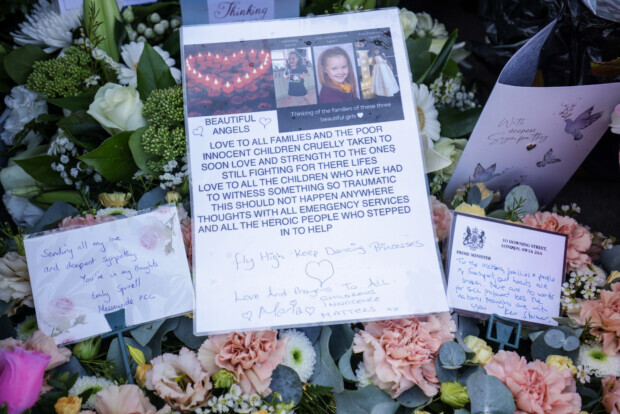 Thinking
Thinking of the families of these three
beautiful girls
BEAUTIFUL
ANGELS
LOVE TO ALL FAMILIES AND THE POOR
INNOCENT CHILDREN CRUELLY TAKEN TO
SOON LOVE AND STRENGTH TO THE ONES
STILL FIGHTING FOR THERE LIFES
LOVE TO ALL THE CHILDREN WHO HAVE HAD
TO WITNESS SOMETHING SO TRAUMATIC
THIS SHOULD NOT HAPPEN ANYWHERE
THOUGHTS WITH ALL EMERGENCY SERVICES
AND ALL THE HEROIC PEOPLE WHO STEPPED
IN TO HELP
"Fly High Keep Dancing Princesses
Love And Prayers To All
CHILDRENS
INNOCENCE
MATTERS xx
Sending all my love
and deepest sympathy
You're in my thoughts
Emily Spurrell
Merseyside PCC
With
deepest
Sympathy
10 DOWNING STREET
LONDON, SW1A 2AA
PRIME MINISTER
To the victims, families & people
of Southport, our hearts are
broken. There are no words
for such
nation's thoughts are with
you. Keir Starmer